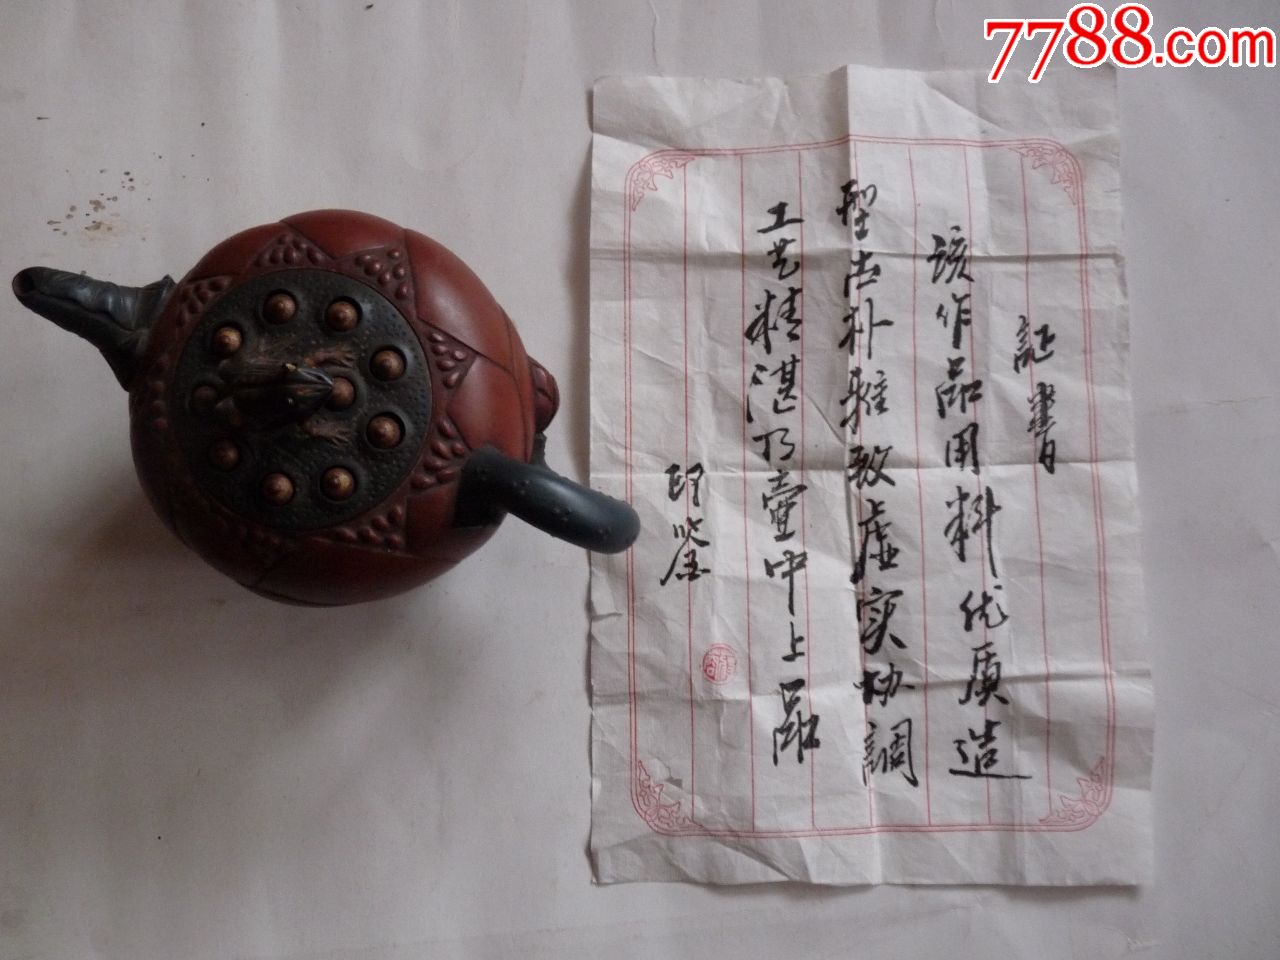 7788.com
証書
該作品用料优质造
型古朴雅致虚实协調
工艺精湛乃壷中上品
印鉴